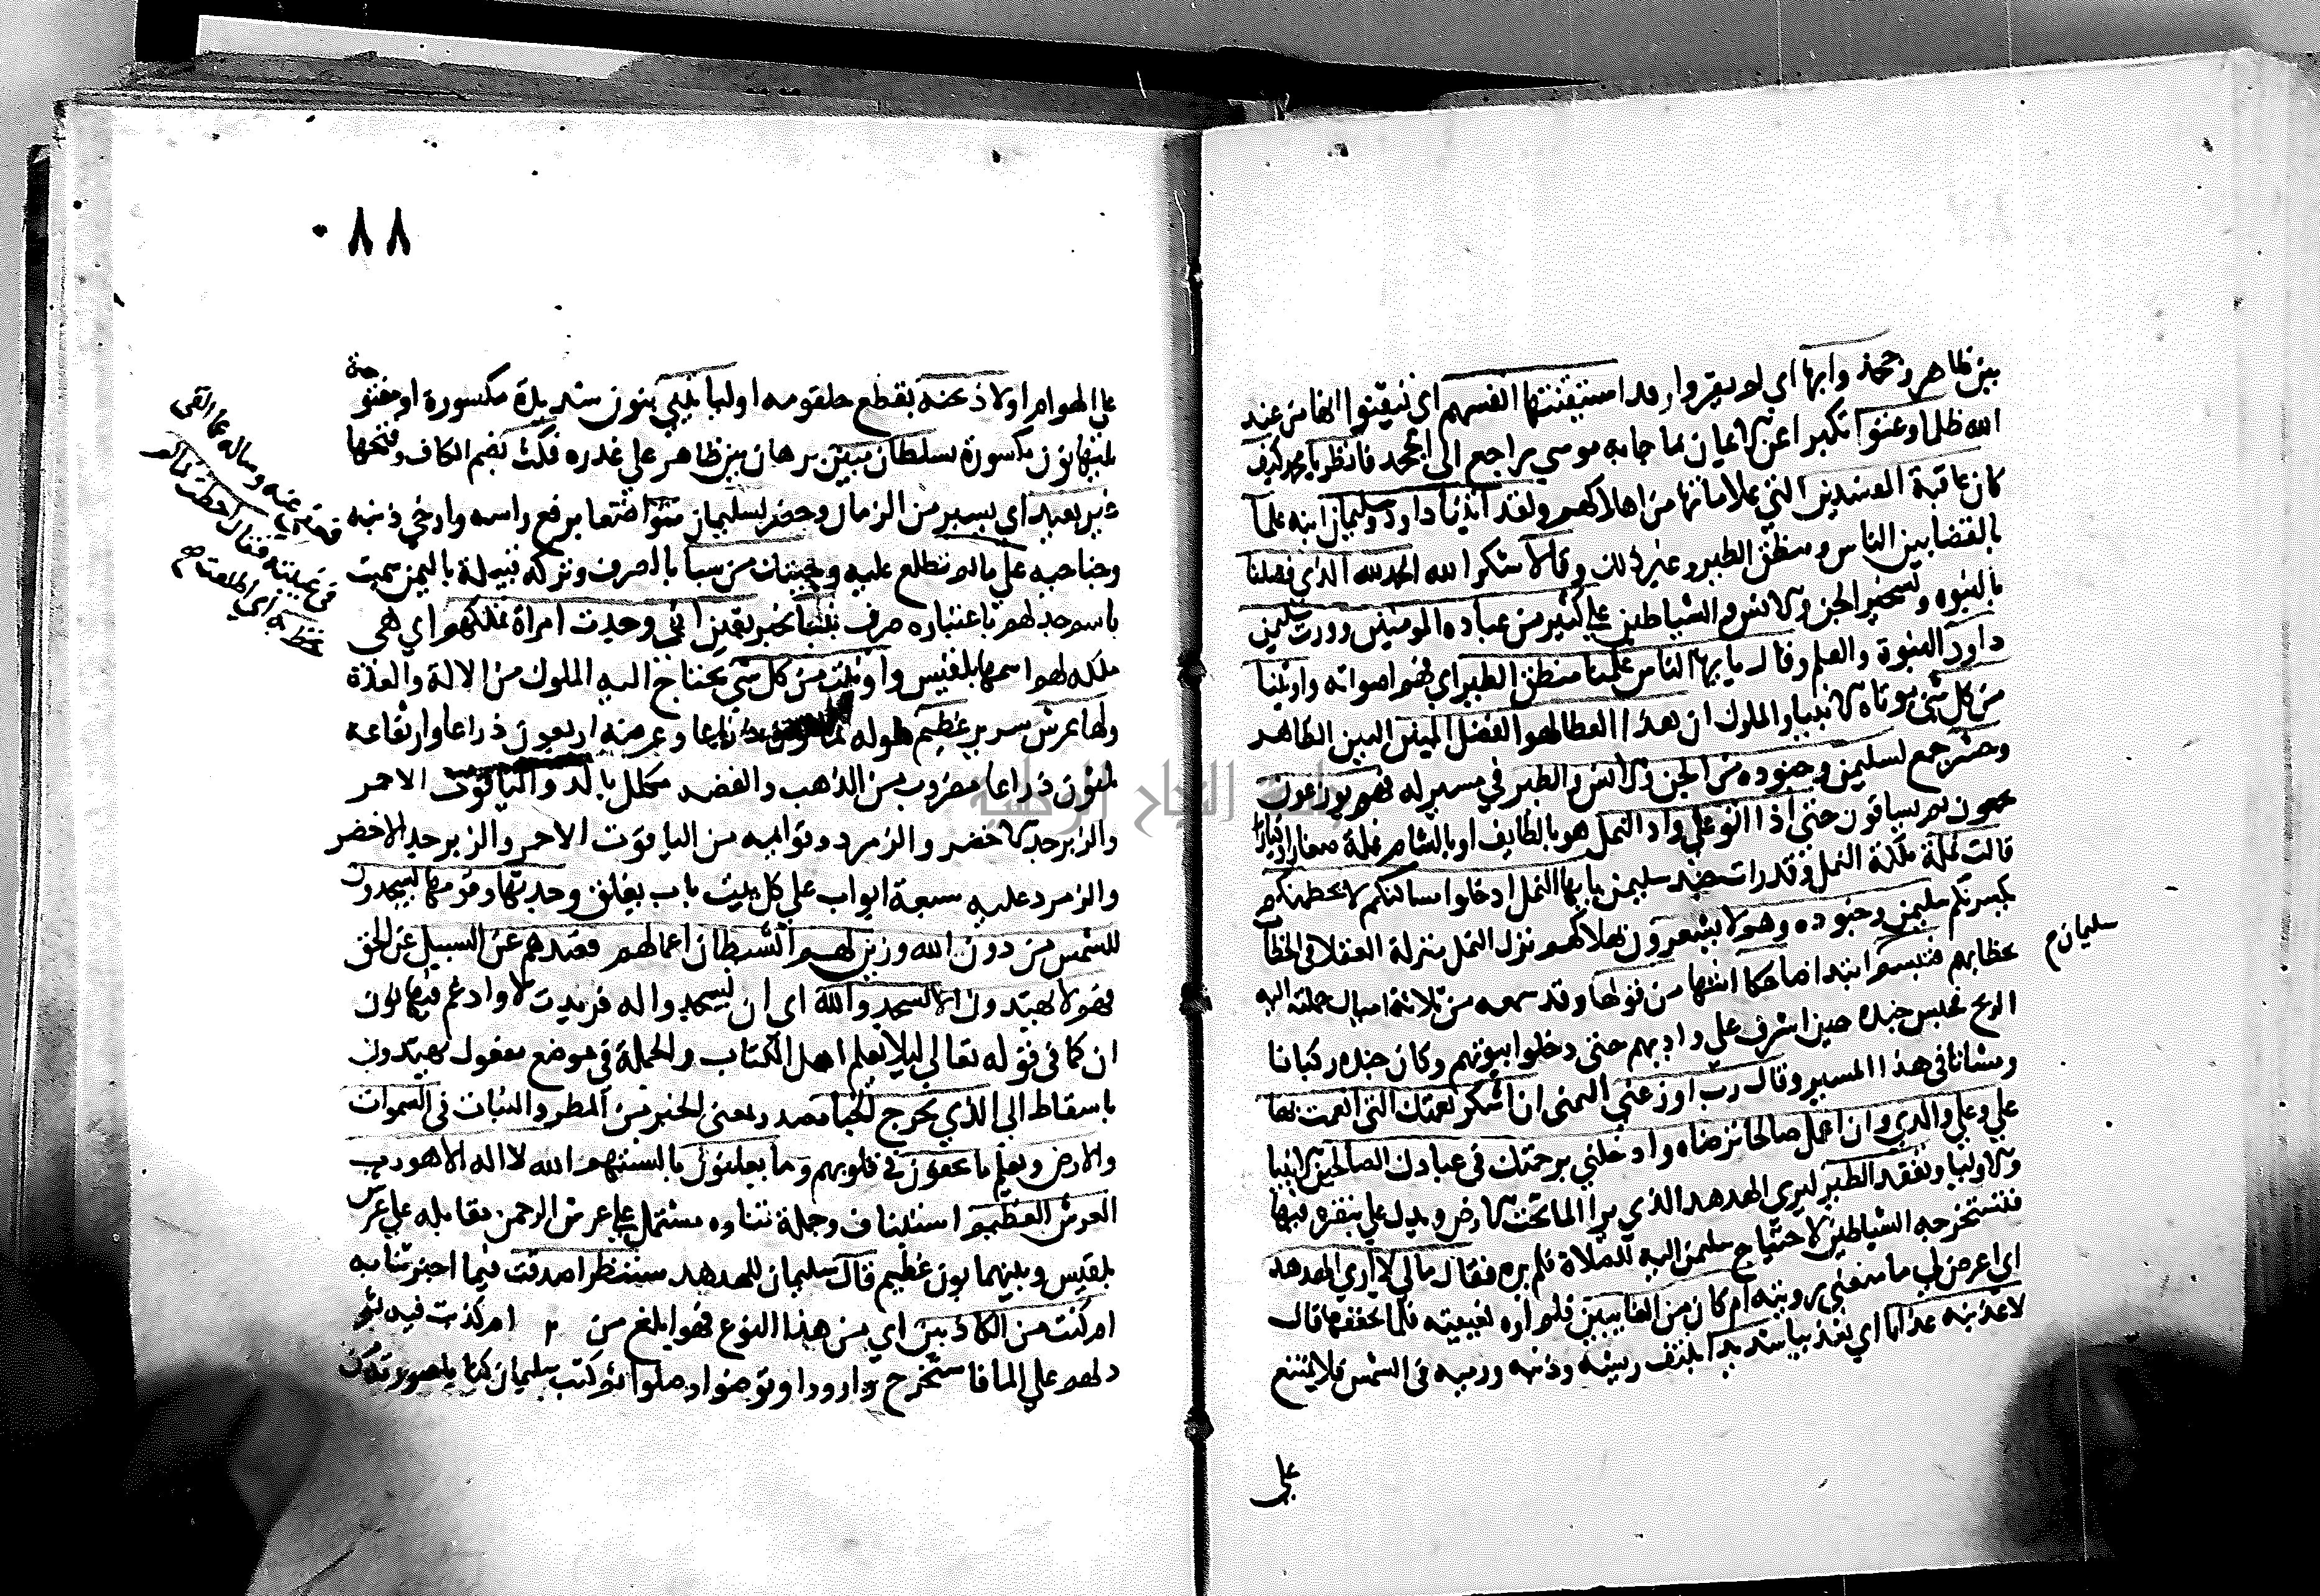 بين ظاهر وجحدوا بها اي لم يقروا وقد استيقنتها انفسهم اي تيقنوا انها من عند
الله ظلما وعلوا تكبرا عن الايمان بما جا به موسي راجع الى الجحد فانظر يا محمد كيف
كان عاقبة المفسدين التي علامتها من اهلاكهم ولقد اتينا داود وسليمان ابنه علما
بالقضا بين الناس ومنطق الطير وغير ذلك وقالا شكرا لله الحمد لله الذي فضلنا
بالنبوه وتسخير الجن والانس والشياطين علي كثير من عباده المومنين وورث سليمن
داود النبوة والعلم وقال يايها الناس علمنا منطق الطير اي فهم اصواته واوتينا
من كل شي يوتاه الانبيا والملوك ان هذا العطا لهو الفضل المبين البين الظاهر
وحشر جمع لسليمن وجنوده من الجن والانس والطير في مسير له فهم يوزعون
يجمعون ثم يساقون حتي اذا اتو علي واد النمل هو بالطايف او بالشام نملة صغار او كبار
قالت نملة ملكة النمل وقد رات جند سليمن يايها النمل ادخلوا مساكنكم لا يحطمنكم
يكسرنكم سليمن وجنوده وهم لا يشعرون بهلاكهم نزل النمل منزلة العقلا في الخطاب
سليمان م
بخطابهم فتبسم ابتدا ضاحكا انتها من قولها وقد سمعه من ثلاثة اميال حملته اليه
الريح فحبس جنده حين اشرف علي واديهم حتى دخلوا بيوتهم وكان جنده ركبانا
ومشاتا في هذا المسير وقال رب اوزعني الهمني ان اشكر نعمتك التي انعمت بها
علي وعلي والدي وان اعمل صالحا ترضاه وادخلني برحمتك في عبادك الصالحين الانبيا
والاوليا وتفقد الطير ليري الهدهد الذي يرا الما تحت الارض ويدل علي بنقره فيها
فتستخرجه الشياطين لاحتياج سليمن اليه للصلاة فلم يره فقال مالي لا اري الهدهد
اي اعرض لي ما منعني رويته ام كان من الغايبين فلم اره لغيبته فلما تحققها قال
لاعذبنه عذابا اي تعذيبا شديدا بنتف ريشه وذنبه ورميه في الشمس فلا يمتنع
علي
٨٨
علي الهوام اولاذبحنه بقطع حلقومه اوليا تيني بنون شديدة مكسورة او مفتوحة
يليها نون مكسورة بسلطان مبين برهان بين ظاهر علي غدره فمكث بضم الكاف وفتحها
غير بعيد اي يسير من الزمان وحضر لسليمان متواضعا برفع راسه وارخي ذنبه
وجناحيه
فعفى عنه وساله عما القى
في غيبته فقال احطت بما لم
تحط به اي اطلعت صح
علي ما لم تطلع عليه وجيتك من سبا بالصرف وتركه قبيلة باليمن سميت
باسم جد لهم باعتباره صرف بنبا بخبر يقين اني وجدت امراة تملكهم اي هي
ملكه لهم اسمها بلقيس واوتيت من كل شي يحتاج اليه الملوك من الالة والعدة
ولها عرش سرير عظيم طوله ذراعا وعرضه اربعون ذراعا وارتفاعه
ثلثون ذراعا مضروب من الذهب والفضه مكلل بالدر والياقوت الاحمر
والزبرجد الاخضر والزمرد وقوايمه من الياقوت الاحمر والزبرجد الاخضر
والزمرد عليه سبعة ابواب علي كل بيت باب يغلق وجدتها وقومها يسجدون
للشمس من دون الله وزين لهم الشيطان اعمالهم فصدهم عن السبيل عن الحق
فهم لا يهتدون الا يسجدوا لله اي ان يسجدوا له فزيدت لا وادغم فيها نون
ان كما في قوله تعالي ليلا يعلم اهل الكتاب والجملة في موضع مفعول يهتدون
باسقاط الى الذي يخرج الخبا مصدر بمعنى المخبو من المطر والنبات في السموات
والارض ويعلم ما يخفون في قلوبهم وما يعلنون بالسنتهم الله لا اله الا هو رب
العرش العظيم استيناف وجملة ثناوه مشتمل علي عرش الرحمن مقابله علي عرش
بلقيس وبينهما بون عظيم قال سليمان للهدهد سننظر اصدقت فيما اخبرتنا به
ام كنت من الكاذبين اي من هذا النوع فهو ابلغ من ام كذبت فيه ثم
دلهم علي الما فاستخرج وارووا وتوضوا وصلوا ثم كتب سليمان كتابا صورته